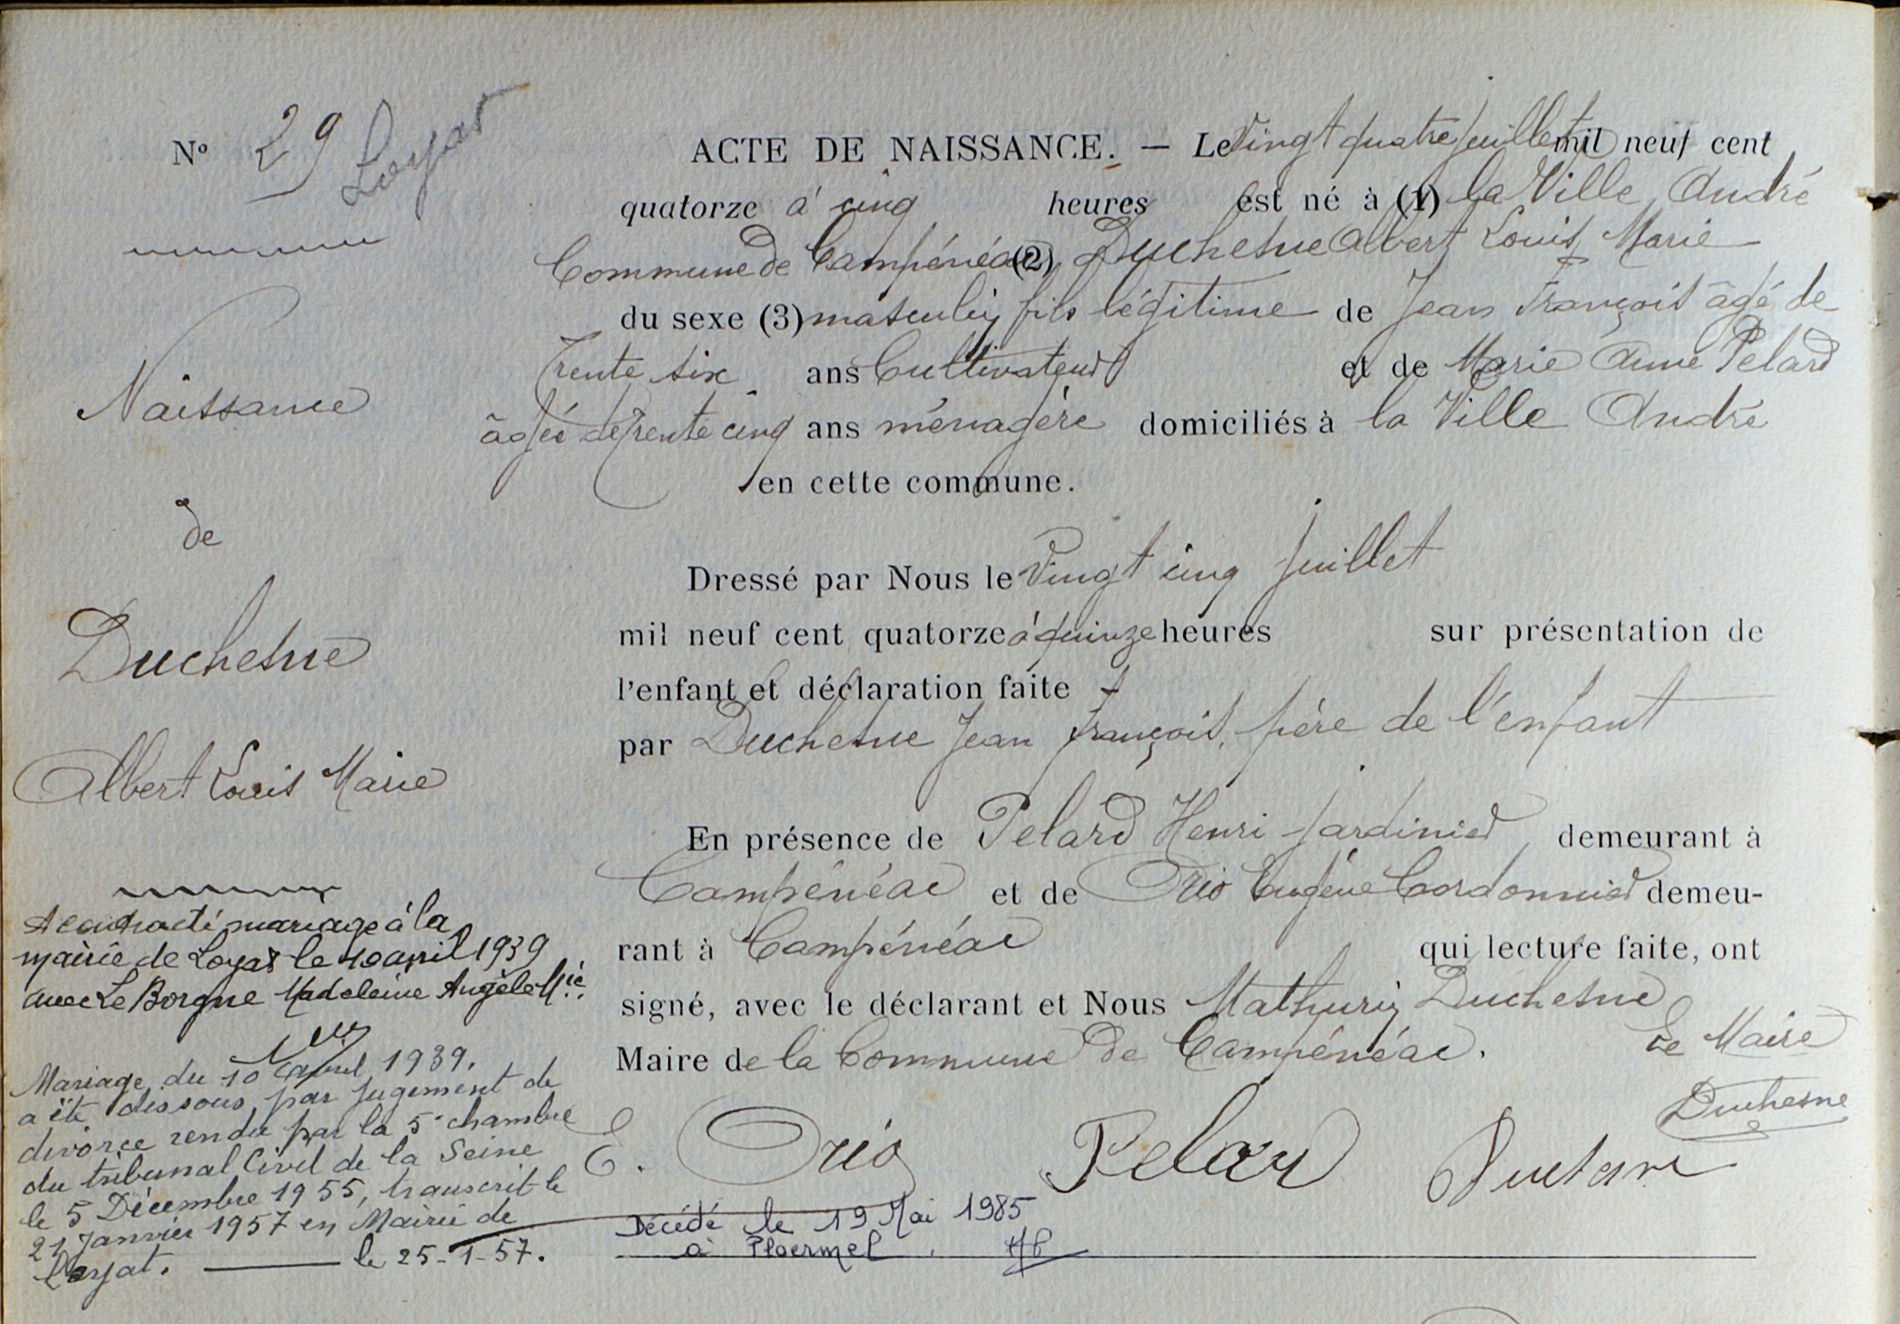 N° 29
Loyat
Naissance
de
Duchesne
Albert Louis Marie
A contracté mariage à la
mairie de Loyat le 10 avril 1939
avec Le Borgne Madeleine Angèle Mie.
Mariage du 10 avril 1939.
a été dissous par jugement de
divorce rendu par la 5e chambre
du tribunal Civil de la Seine
le 5 Décembre 1955, transcrit le
21 Janvier 1957 en Mairie de
Loyat. le 25-1-57.
ACTE DE NAISSANCE. — Le Vingt quatre Juillet mil neuf cent
quatorze à cinq heures est né à (1) la Ville André
Commune de Campénéac (2) Duchesne Albert Louis Marie
du sexe (3) masculin fils légitime de Jean François âgé de
Trente six ans Cultivateur et de Marie Anne Pelard
âgée de trente cinq ans ménagère domiciliés à la Ville André
en cette commune.
Dressé par Nous le Vingt cinq Juillet
mil neuf cent quatorze à quinze heures sur présentation de
l'enfant et déclaration faite
par Duchesne Jean François, père de l'enfant
En présence de Pelard Henri Jardinier demeurant à
Campénéac et de Orio Eugène Cordonnier demeu-
rant à Campénéac qui lecture faite, ont
signé, avec le déclarant et Nous Mathurin Duchesne
Maire de la Commune de Campénéac. Le Maire
Duchesne
E. Orio Pelard
Décédé le 19 Mai 1985
à Ploermel.